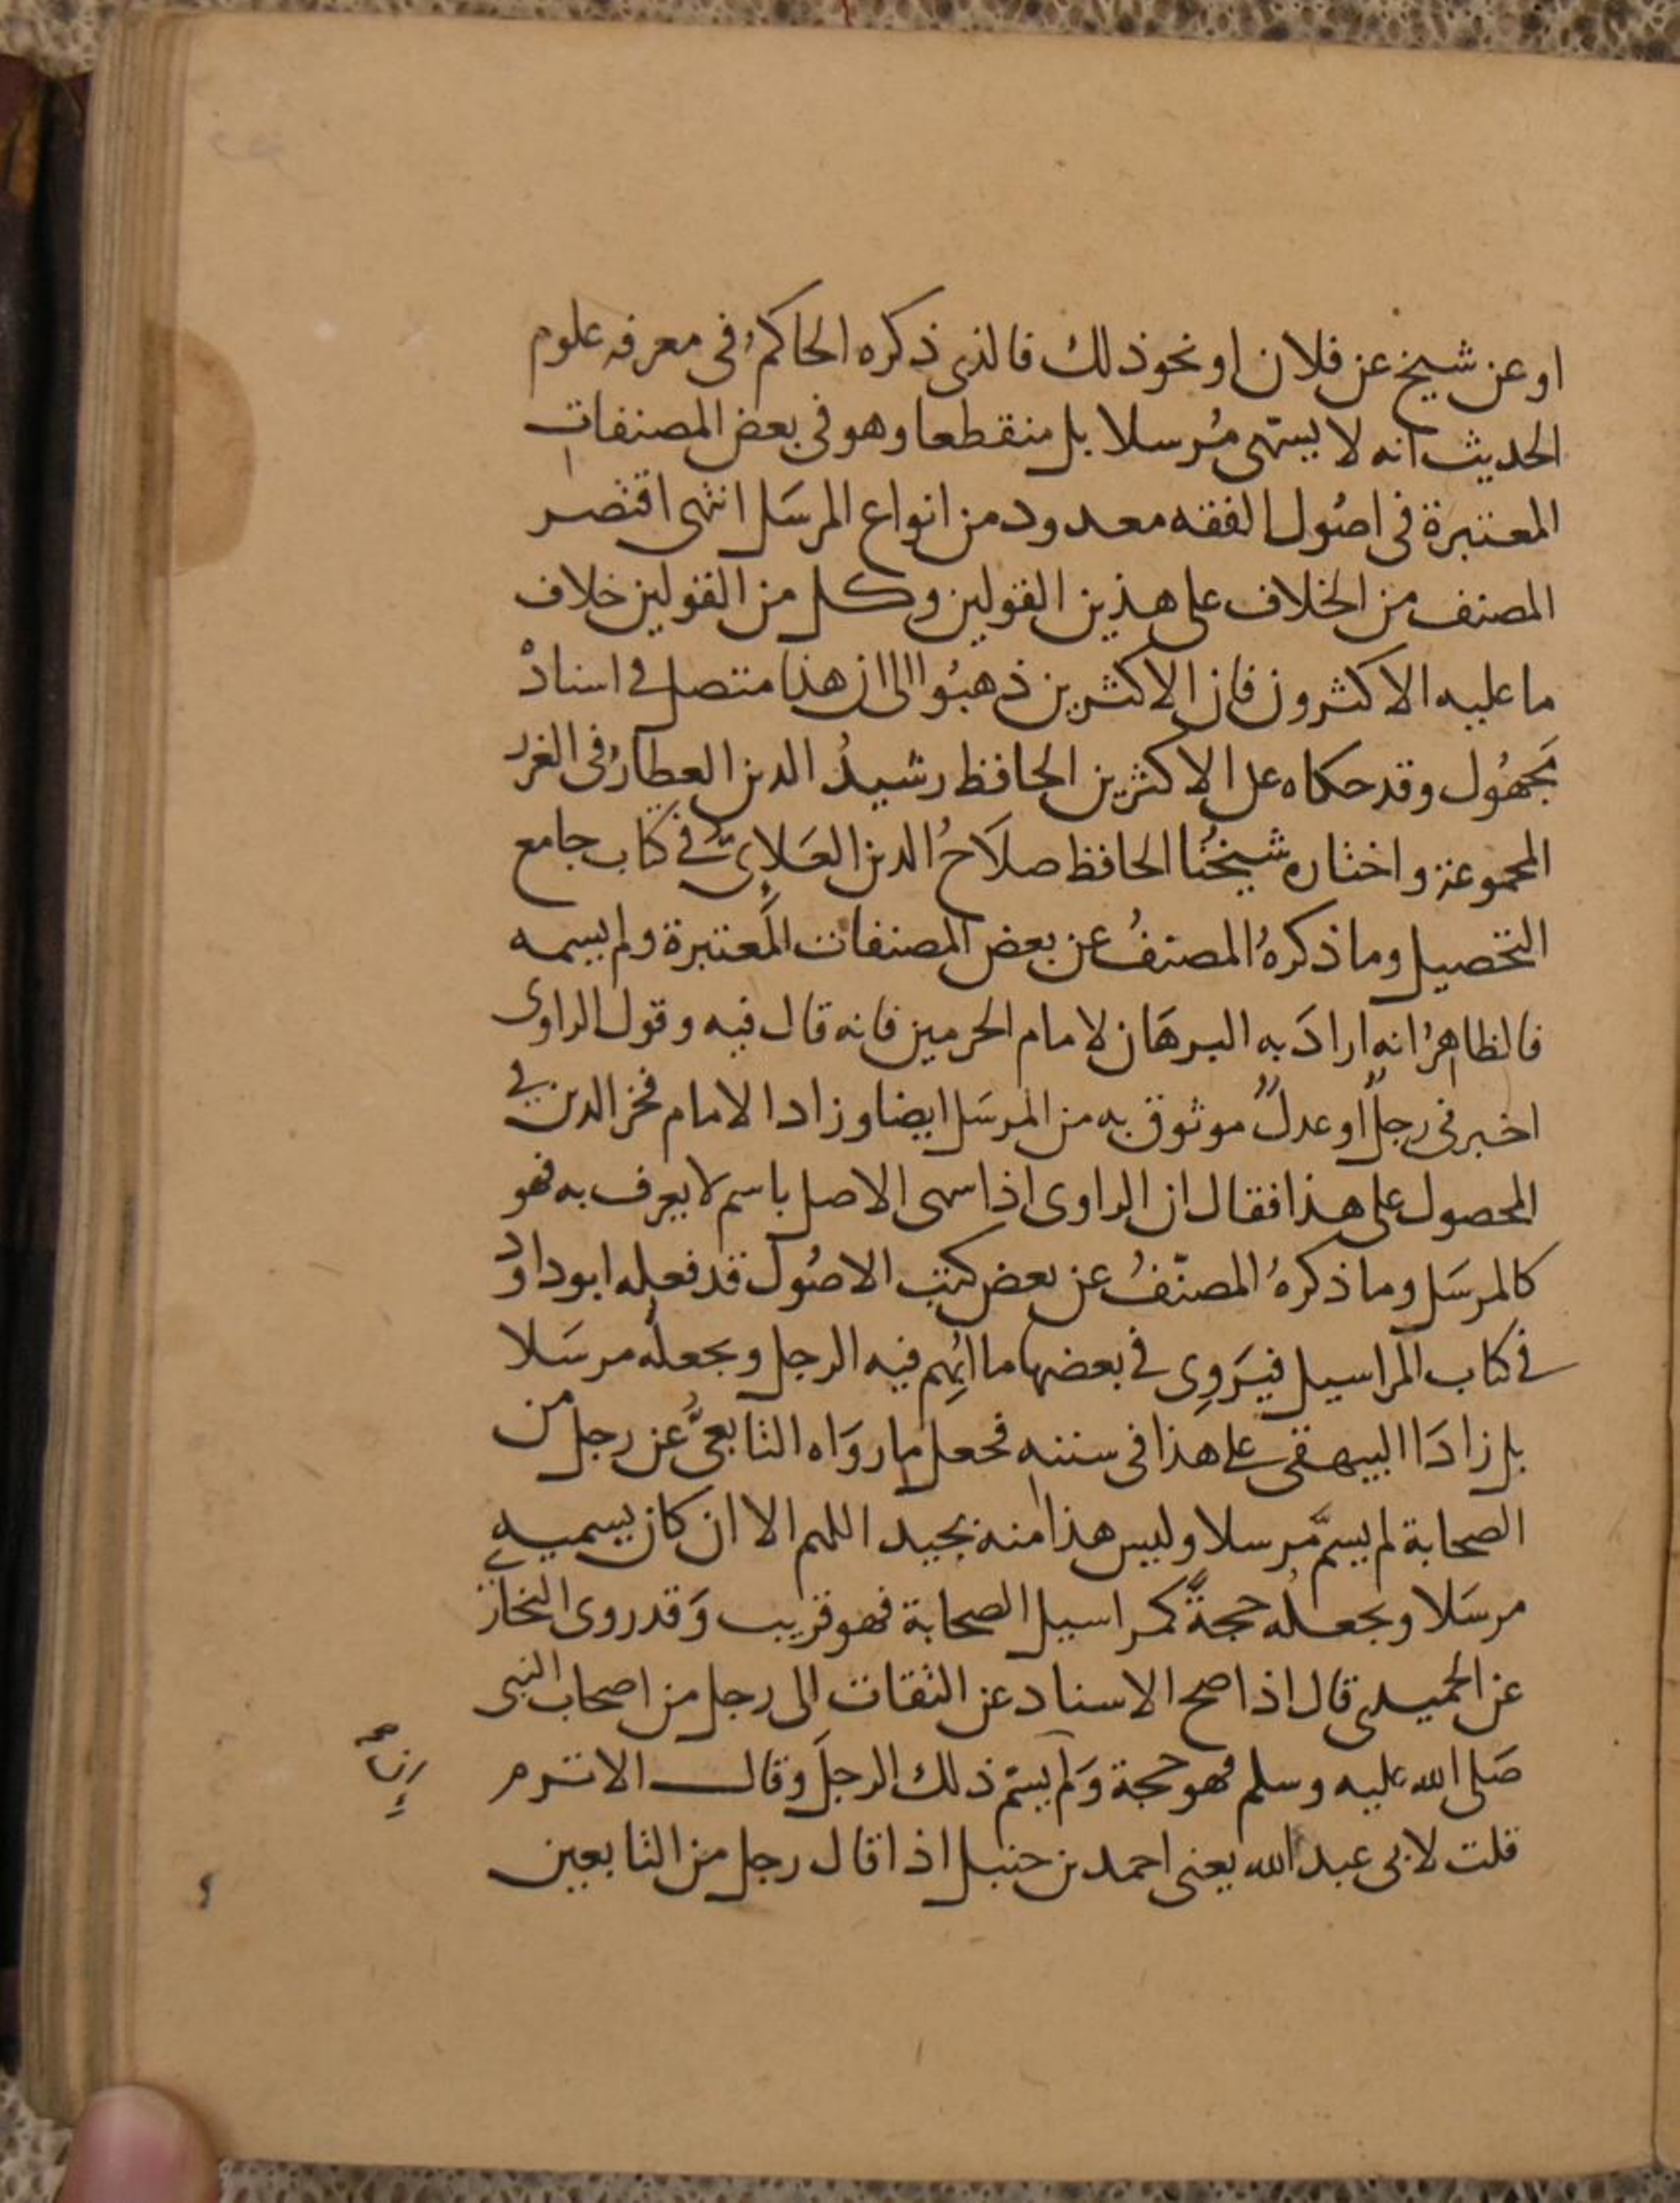 او عن شيخ عن فلان او نحو ذلك فالذى ذكره الحاكمُ فى معرفه علوم
الحديث انه لا يسمّى مُرسلا بل منقطعا وهو فى بعض المصنفات
المعتبرة فى اصُول الفقه معدود من انواع المرسَل انتهى اقتصر
المصنف من الخلاف على هذين القولين وكل من القولين خلاف
ما عليه الاكثرون فان الاكثرين ذهبُوا الى ان هذا متصل فى اسنادْ
مَجهُول وقد حكاه عن الاكثرين الحافظ رشيدُ الدين العطارُ فى الغرر
المجموعة واختاره شيخُنا الحافظ صلاَحُ الدين العَلاِىُّ فى كتاب جامع
التحصيل وما ذكرهُ المصنفُ عن بعض المصنفات المُعتبرة ولم يسمه
فالظاهرُ انه ارادَ به البرهَان لامام الحرمين فانه قال فيه وقول الراوى
اخبرنى رجلٌ او عدلٌ موثوق به من المرسَل ايضا وزاد الامام فخر الدين فى
المحصول على هذا فقال ان الراوى اذا سمى الاصل باسم لا يعرف به فهو
كالمرسَل وما ذكرهُ المصنّفُ عن بعض كتب الاصُول قد فعله ابو داوُد
فى كتاب المراسيل فيَروِى فى بعضها ما اُبهِم فيه الرجل ويجعلُه مرسَلا
بل زادَ البيهقى على هذا فى سننه فجعل ما روَاه التابعىُّ عن رجل من
الصحابة لم يسمَّ مرسلا وليس هذا منه بجيد اللهم الا ان كان يسميه
مرسَلا ويجعلُه حجةً كمراسيل الصحابة فهو قريب وَقد روى البخارى
عن الحميدى قال اذا صح الاسناد عن الثقات الى رجل من اصحاب النبى
صَلى الله عليه وسلم فهو حجة وَلم يسمّ ذلك الرجلَ وقال الاثرم
قلت لابى عبد الله يعنى احمد بن حنبل اذا قال رجل من التابعين